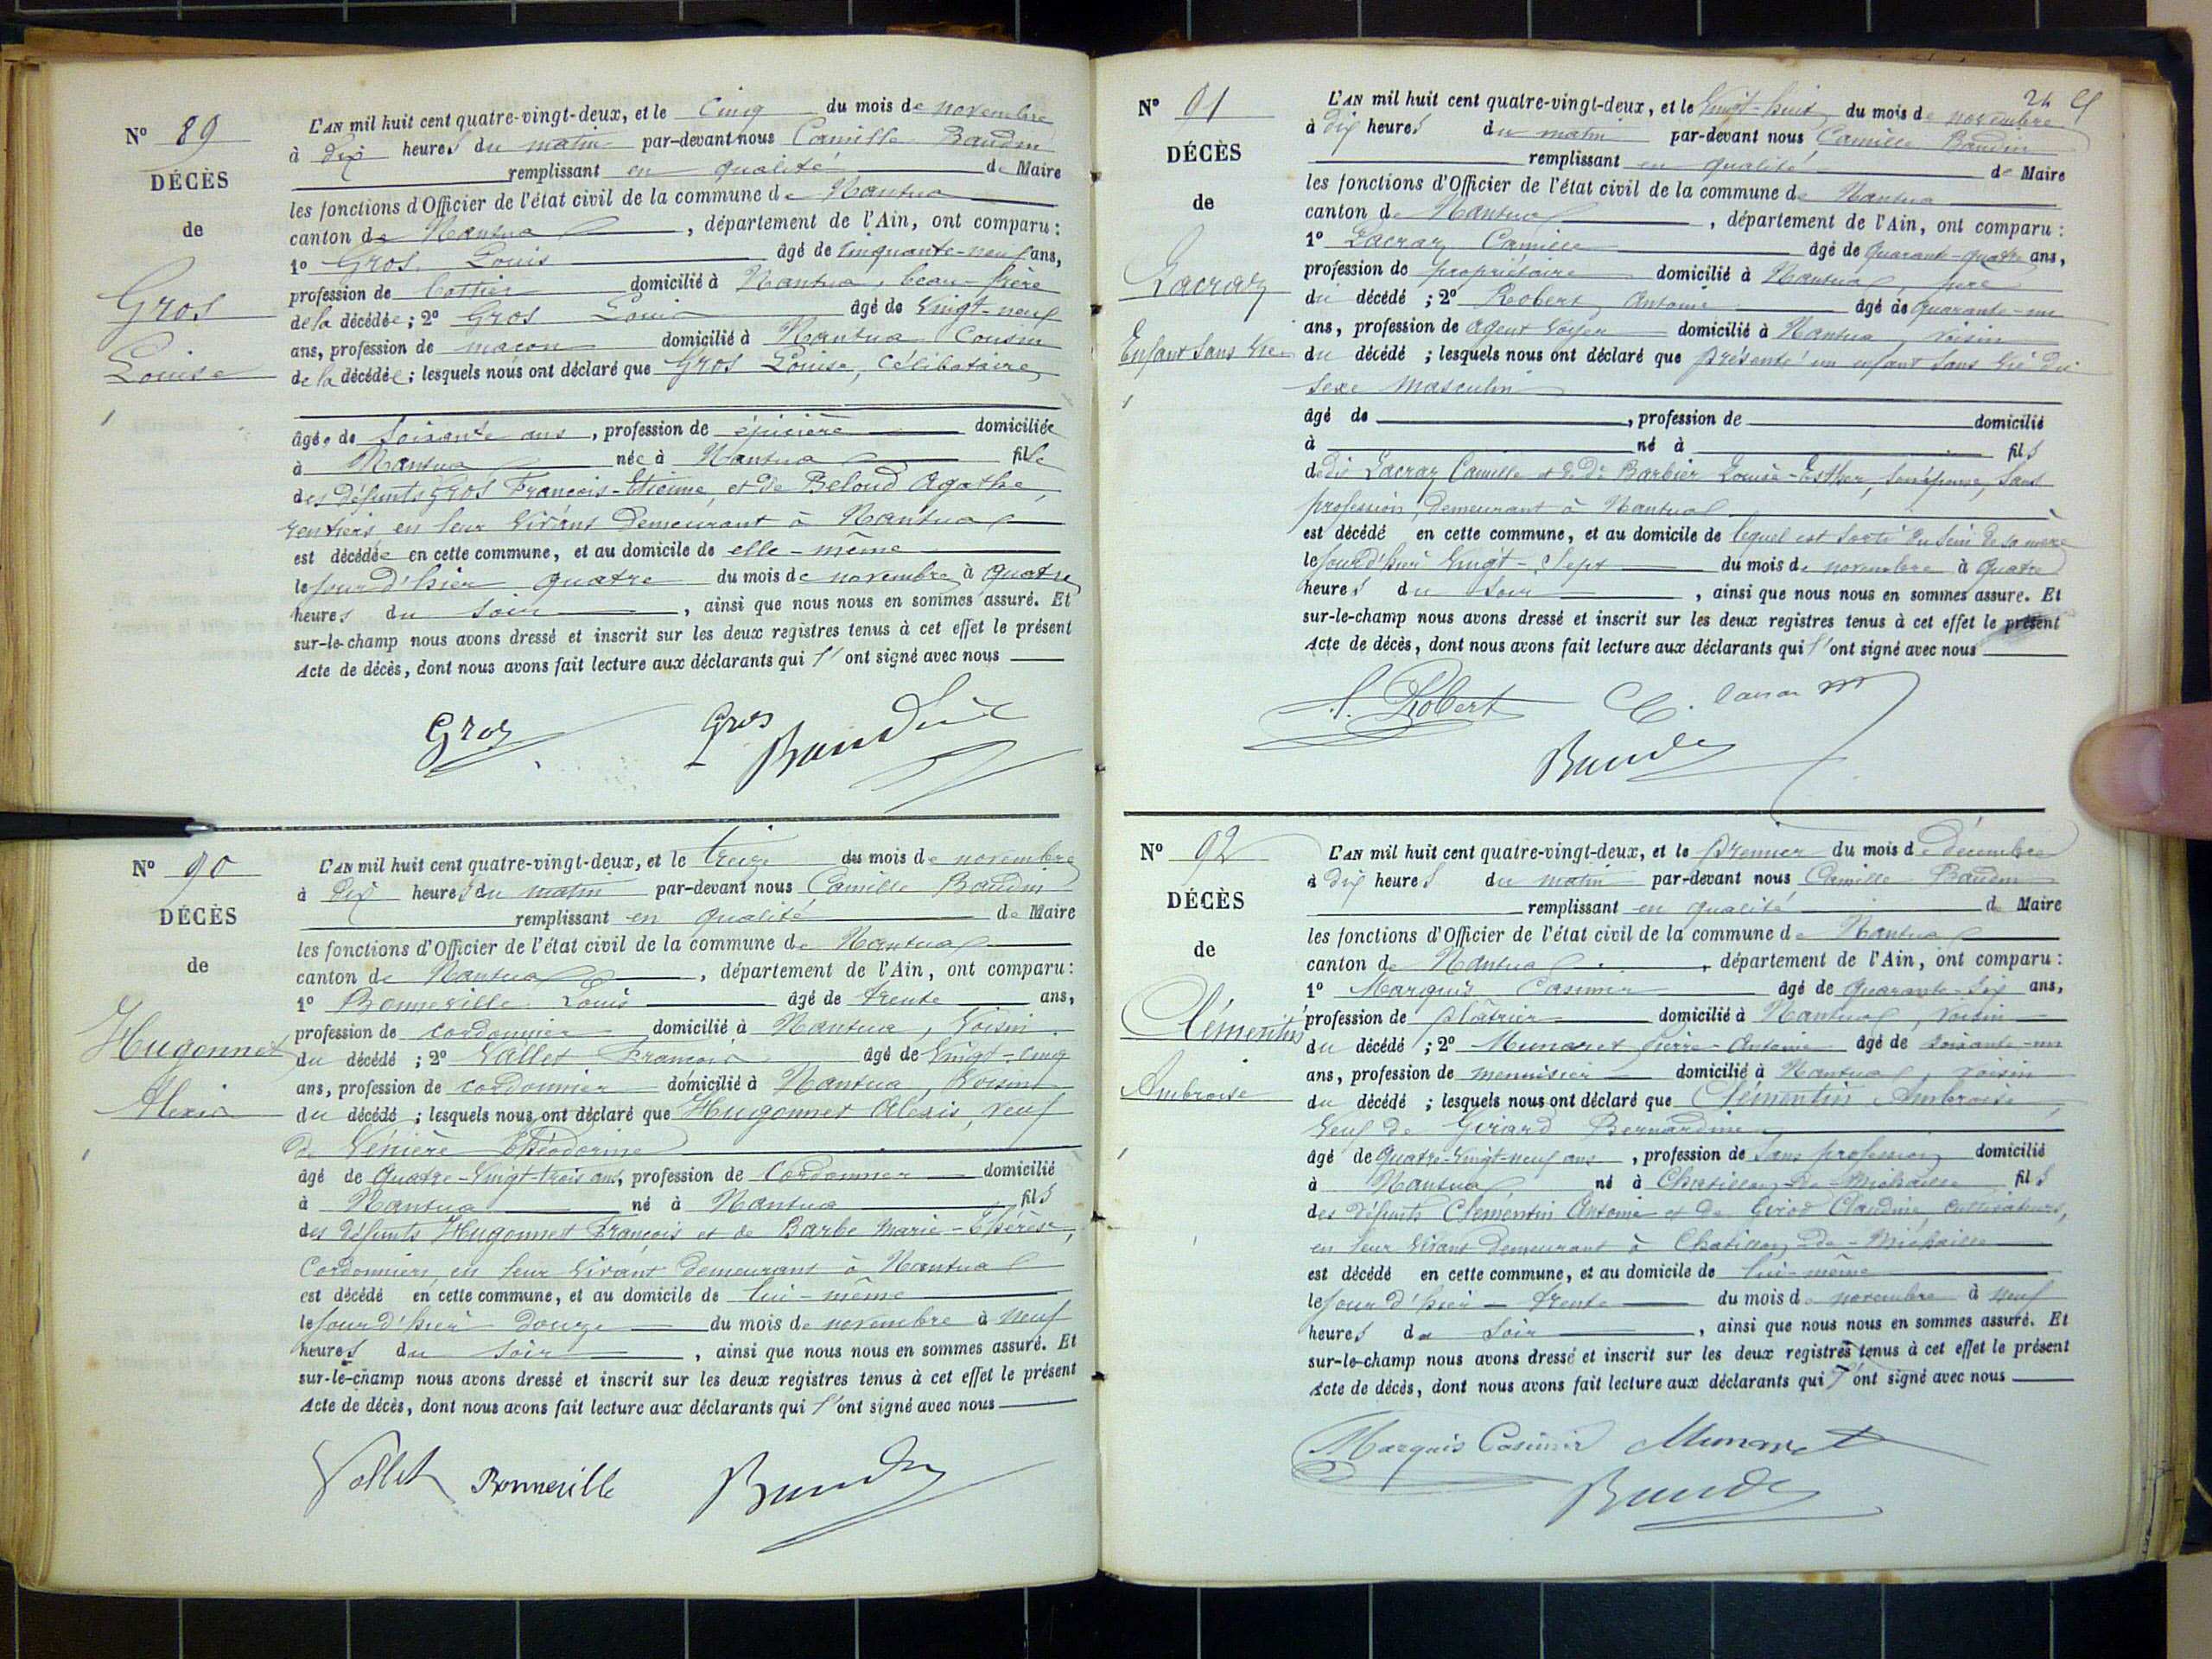 N° 89
DÉCÈS
de
Gros
Louise
1
L'AN mil huit cent quatre-vingt-deux, et le Cinq du mois de novembre
à dix heures du matin par-devant nous Camille Baudin
remplissant en qualité de Maire
les fonctions d'Officier de l'état civil de la commune de Nantua
canton de Nantua, département de l'Ain, ont comparu :
1° Gros Louis âgé de Cinquante-neuf ans,
profession de domicilié à Nantua, beau-frère
de la décédée ; 2° Gros Louis âgé de Vingt-neuf
ans, profession de maçon domicilié à Nantua Cousin
de la décédée ; lesquels nous ont déclaré que Gros Louise, Célibataire,
âgée de Soixante ans, profession de épicière domiciliée
à Nantua née à Nantua fille
des défunts Gros François-Etienne, et de Beloud Agathe,
rentiers en leur vivant demeurant à Nantua
est décédée en cette commune, et au domicile de elle-même
le jour d'hier quatre du mois de novembre à quatre
heures du soir, ainsi que nous nous en sommes assuré. Et
sur-le-champ nous avons dressé et inscrit sur les deux registres tenus à cet effet le présent
Acte de décès, dont nous avons fait lecture aux déclarants qui l'ont signé avec nous
Gros Gros Baudin
N° 90
DÉCÈS
de
Hugonnet
Alexis
1
L'AN mil huit cent quatre-vingt-deux, et le treize du mois de novembre
à dix heures du matin par-devant nous Camille Baudin
remplissant en qualité de Maire
les fonctions d'Officier de l'état civil de la commune de Nantua
canton de Nantua, département de l'Ain, ont comparu :
1° Bonneville Louis âgé de trente ans,
profession de cordonnier domicilié à Nantua, Voisin
du décédé ; 2° Vallet François âgé de Vingt-cinq
ans, profession de cordonnier domicilié à Nantua, Voisin
du décédé ; lesquels nous ont déclaré que Hugonnet Alexis, veuf
de Venière Théodorine
âgé de Quatre-Vingt-trois ans, profession de Cordonnier domicilié
à Nantua né à Nantua fils
des défunts Hugonnet François et de Barbe Marie-Thérèse,
Cordonniers, en leur vivant demeurant à Nantua
est décédé en cette commune, et au domicile de lui-même
le jour d'hier douze du mois de novembre à neuf
heures du soir, ainsi que nous nous en sommes assuré. Et
sur-le-champ nous avons dressé et inscrit sur les deux registres tenus à cet effet le présent
Acte de décès, dont nous avons fait lecture aux déclarants qui l'ont signé avec nous
Vallet Bonneville Baudin
24
N° 91
DÉCÈS
de
Lacraz
Enfant sans vie
1
L'AN mil huit cent quatre-vingt-deux, et le Vingt-huit du mois de novembre
à dix heures du matin par-devant nous Camille Baudin
remplissant en qualité de Maire
les fonctions d'Officier de l'état civil de la commune de Nantua
canton de Nantua, département de l'Ain, ont comparu :
1° Lacraz Camille âgé de Quarante-quatre ans,
profession de propriétaire domicilié à Nantua, père
du décédé ; 2° Robert Antoine âgé de quarante-un
ans, profession de agent voyer domicilié à Nantua, voisin
du décédé ; lesquels nous ont déclaré que présenté un enfant sans vie du
sexe masculin
âgé de, profession de domicilié
à né à fils
de dit Lacraz Camille et de Barbier Louise-Esther, son épouse, sans
profession, demeurant à Nantua
est décédé en cette commune, et au domicile de lequel est sorti du sein de sa mère
le jour d'hier Vingt-Sept du mois de novembre à quatre
heures du soir, ainsi que nous nous en sommes assuré. Et
sur-le-champ nous avons dressé et inscrit sur les deux registres tenus à cet effet le présent
Acte de décès, dont nous avons fait lecture aux déclarants qui l'ont signé avec nous
A. Robert C. Lacraz
Baudin
N° 92
DÉCÈS
de
Clémentin
Ambroise
1
L'AN mil huit cent quatre-vingt-deux, et le Premier du mois de décembre
à dix heures du matin par-devant nous Camille Baudin
remplissant en qualité de Maire
les fonctions d'Officier de l'état civil de la commune de Nantua
canton de Nantua, département de l'Ain, ont comparu :
1° Marquis Casimir âgé de Quarante-six ans,
profession de plâtrier domicilié à Nantua, voisin
du décédé ; 2° Munaret Pierre-Antoine âgé de soixante-un
ans, profession de menuisier domicilié à Nantua, voisin
du décédé ; lesquels nous ont déclaré que Clémentin Ambroise,
Veuf de Girard Bernardine
âgé de Quatre-Vingt-neuf ans, profession de Sans profession domicilié
à Nantua né à Chatillon-de-Michaille fils
des défunts Clémentin Antoine et de Girod Claudine, cultivateurs,
en leur vivant demeurant à Chatillon-de-Michaille
est décédé en cette commune, et au domicile de lui-même
le jour d'hier trente du mois de novembre à neuf
heures du soir, ainsi que nous nous en sommes assuré. Et
sur-le-champ nous avons dressé et inscrit sur les deux registres tenus à cet effet le présent
Acte de décès, dont nous avons fait lecture aux déclarants qui l'ont signé avec nous
Marquis Casimir Munaret
Baudin